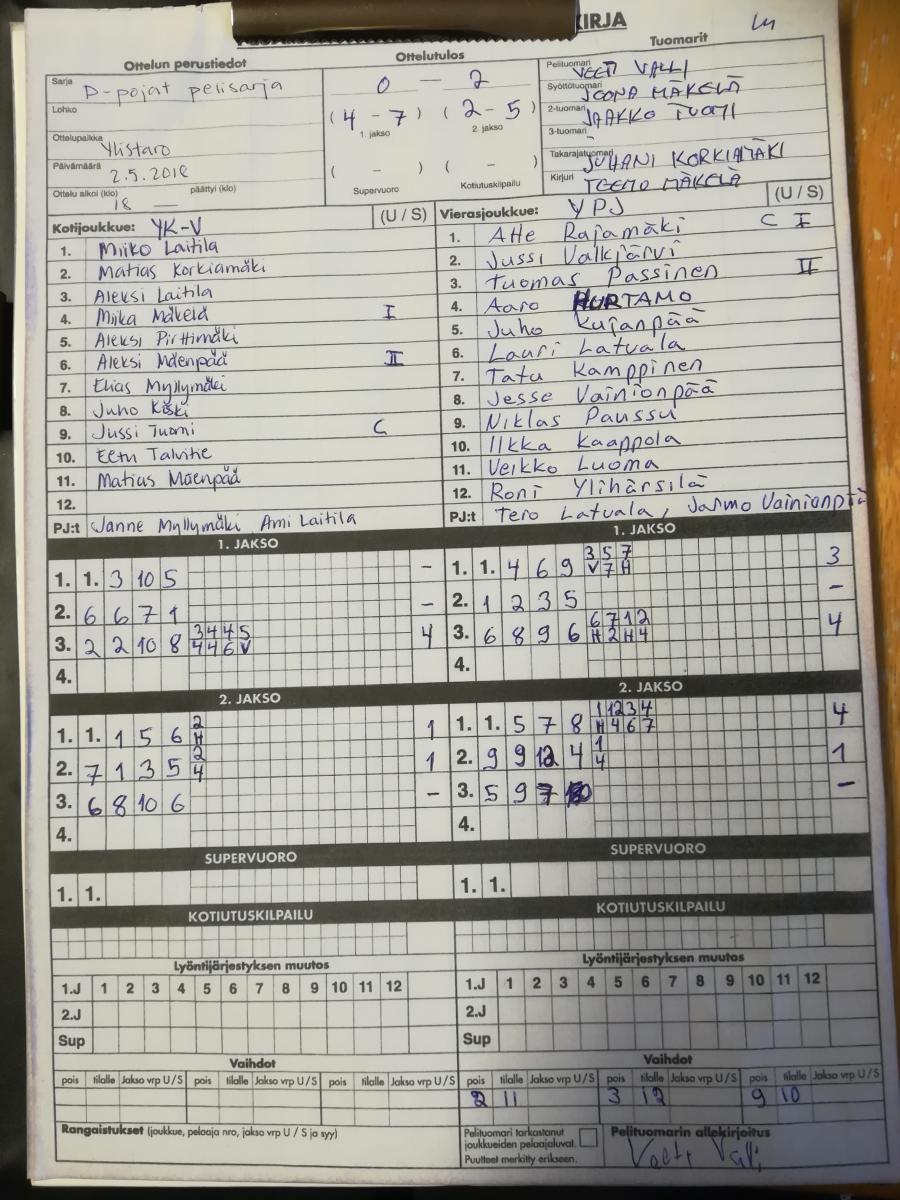 KIRJA
Ottelun perustiedot
Sarja
D-pojat pelisarja
Lohko
Ottelupaikka
Ylistaro
Päivämäärä
2.5.2018
Ottelu alkoi (klo) päättyi (klo)
18 —
Ottelutulos
0 - 2
(4 - 7) (2 - 5)
1. jakso 2. jakso
( - ) ( - )
Supervuoro Kotiutuskilpailu
Tuomarit
Pelituomari VEETI VALLI
Syöttötuomari JOONA MÄKELÄ
2-tuomari JAAKKO TUOMI
3-tuomari -
Takarajatuomari JUHANI KORKIAMÄKI
Kirjuri TEEMO MÄKELÄ
Kotijoukkue: YK-V (U / S)
1. Miiko Laitila
2. Matias Korkiamäki
3. Aleksi Laitila
4. Miika Mäkelä I
5. Aleksi Pirttimäki
6. Aleksi Mäenpää II
7. Elias Myllymäki
8. Juho Kiski
9. Jussi Tuomi C
10. Eetu Talvitie
11. Matias Mäenpää
12.
PJ:t Janne Myllymäki Ami Laitila
Vierasjoukkue: YPJ (U / S)
1. Atte Rajamäki C I
2. Jussi Valkjärvi
3. Tuomas Passinen II
4. Aaro HURTAMO
5. Juho Kujanpää
6. Lauri Latvala
7. Tatu Kamppinen
8. Jesse Vainionpää
9. Niklas Paussu
10. Ilkka Kaappola
11. Veikko Luoma
12. Roni Ylihärsilä
PJ:t Tero Latvala, Jarmo Vainionpää
1. JAKSO
1. 1. 3 10 5 -
2. 6 6 7 1 -
3. 2 2 10 8 3 4 4 5 4
4 4 6 V
4.
1. JAKSO
1. 1. 4 6 9 3 5 7 3
V 7 H
2. 1 2 3 5 -
3. 6 8 9 6 6 7 1 2 4
H 2 H 4
4.
2. JAKSO
1. 1. 1 5 6 2 1
H
2. 7 1 3 5 2 1
4
3. 6 8 10 6 -
4.
2. JAKSO
1. 1. 5 7 8 1 12 3 4 4
H 4 6 7
2. 9 9 12 4 1 1
4
3. 5 9 7 10 -
4.
SUPERVUORO
1. 1.
SUPERVUORO
1. 1.
KOTIUTUSKILPAILU
KOTIUTUSKILPAILU
Lyöntijärjestyksen muutos
1.J 1 2 3 4 5 6 7 8 9 10 11 12
2.J
Sup
Lyöntijärjestyksen muutos
1.J 1 2 3 4 5 6 7 8 9 10 11 12
2.J
Sup
Vaihdot
pois tilalle Jakso vrp U / S pois tilalle Jakso vrp U / S pois tilalle Jakso vrp U / S
Vaihdot
pois tilalle Jakso vrp U / S pois tilalle Jakso vrp U / S pois tilalle Jakso vrp U / S
2 11 3 12 9 10
Rangaistukset (joukkue, pelaaja nro, jakso vrp U / S ja syy)
Pelituomari tarkastanut
joukkueiden pelaajaluval.
Puutteet merkitty erikseen.
Pelituomarin allekirjoitus
Veeti Valli